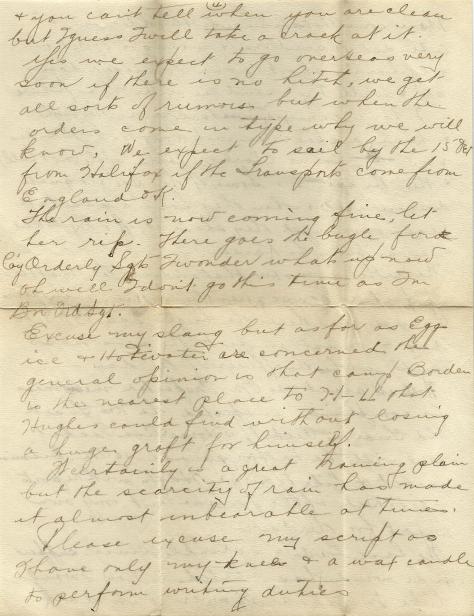 (4)
& you can't tell when you are clean
but I guess I will take a crack at it.
Yes we expect to go overseas very
soon if there is no hitch, we get
all sorts of rumors but when the
orders come in type why we will
know, We expect to sail by the 15th
from Halifax if the Transports come from
England OK.
The rain is now coming fine, let
her rip. There goes the bugle for
Coy Orderly Sgts I wonder what up now
oh well I don't go this time as I'm
Bn Ord Sgt.
Excuse my slang but as far as Egg
ice & Hotwater are concerned the
general opinion is that camp Borden
is the nearest place to H-ll that
Hughes could find without losing
a huge graft for himself.
It certainly is a great training plain
but the scarcity of rain has made
it almost unbearable at times.
Please excuse my script as
I have only my knees & a wax candle
to perform writing duties